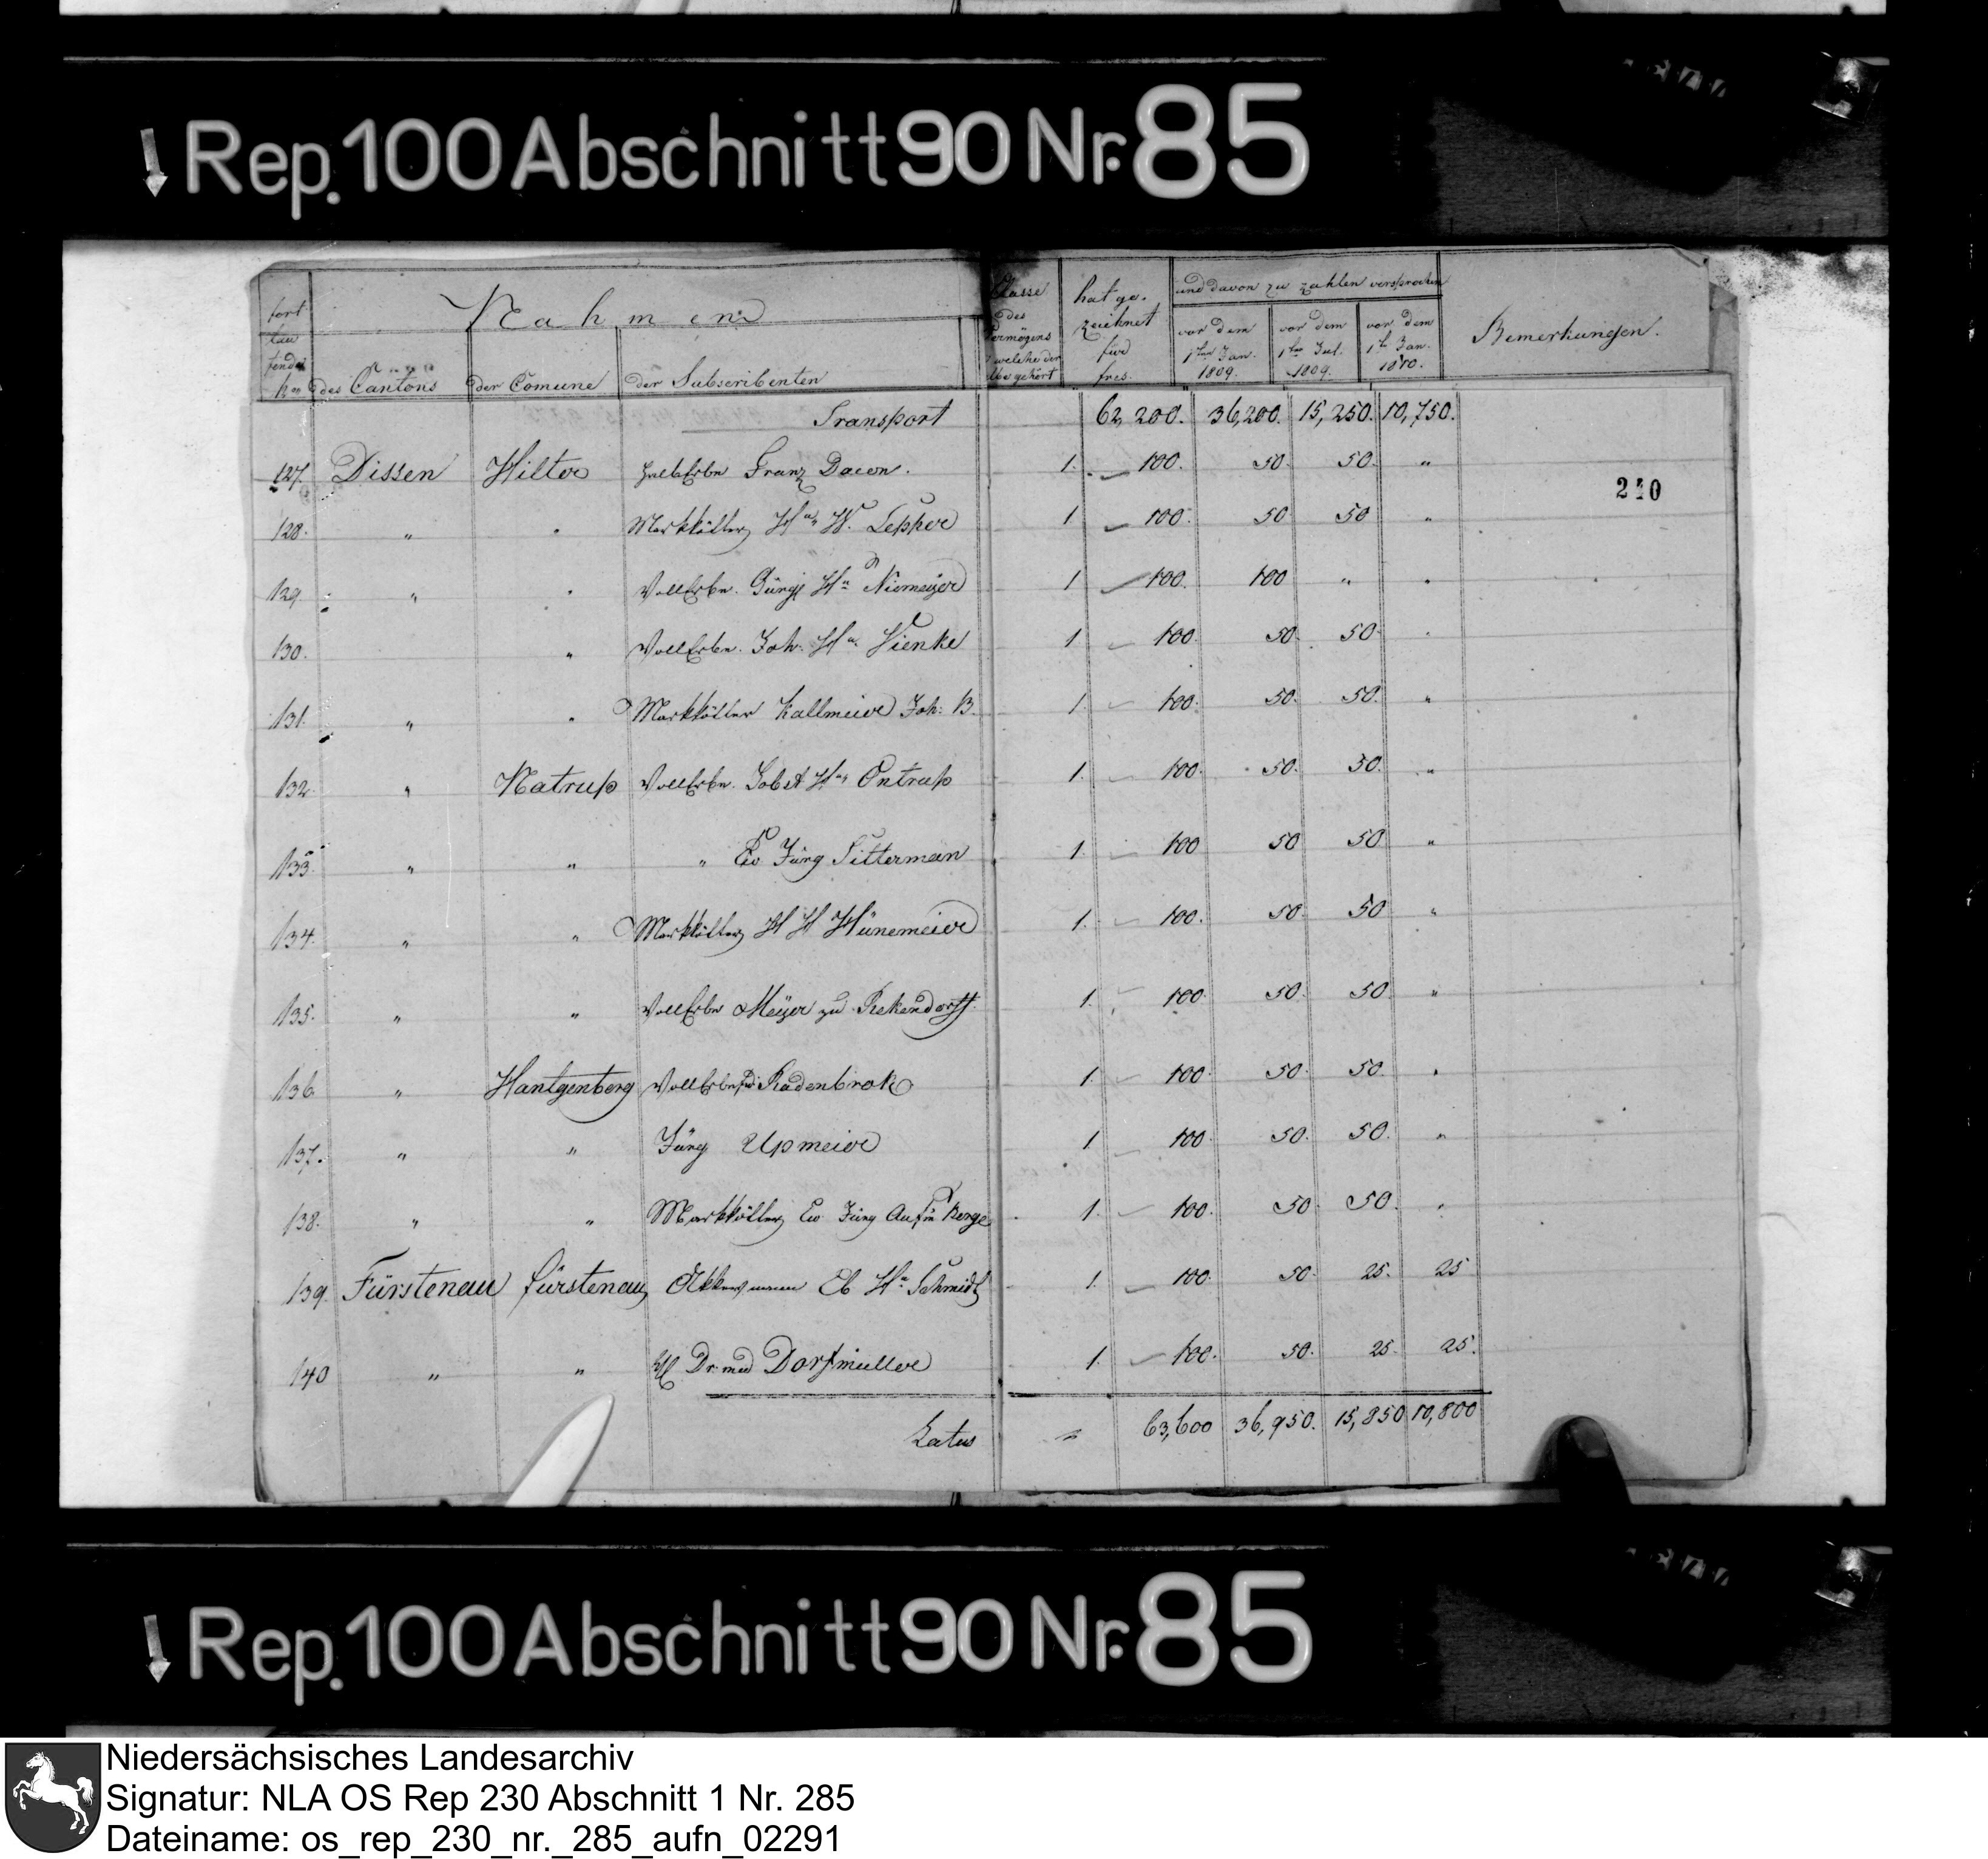 Rep. 100 Abschnitt 90 Nr. 85
fort
lau
fende
Nahmen
Classe
des
Vermögens
welche der
gehört
hat ge-
zeichnet
für
frcs.
und davon zu zahlen versprochen
vor dem
1ten Jan.
1809.
vor dem
1ten Jul.
1809.
vor dem
1te Jan.
1810.
Bemerkungen.
des Cantons der Comune der Subscribenten
Transport 62,200. 36,200. 15,250. 10,750.
127. Dissen Hilter Franz 1. 100. 50. 50. "
210
128. " " Markkötter Hn W. Tepher 1 100. 50 50 "
129 " " VollErbe. Jürg Hn Niemeyer 1 100. 100 " "
130. " VollErbe. Joh. Hn Vienke 1 100. 50. 50. "
131. " " Markkötter Kallmeier Joh. B. 1 100. 50. 50. "
132. " Natrup VollErbe. Jobst Hn Ontrup 1. 100. 50. 50. "
133. " " " Ev Jürg Sitterman 1. 100 50 50 "
134. " " Markkötter H H Hünemeier 1. 100. 50. 50 "
135. " " VollErbe Meyer zu Rekendorff. 1. 100. 50. 50. "
136. " Hantgenberg VollErbe Radenbrok 1. 100. 50. 50. "
137. " " Jürg Upmeier 1 100. 50. 50. "
138. " " Markkötter Ev Jürg Aufm Berge 1. 100. 50. 50. "
139. Fürstenau fürstenau Akkersmann Eb Hn Schmidt 1. 100. 50. 25. 25
140 " " H Dr. med Dorfmüller 1. 100. 50. 25. 25.
Latus " 63,600 36,950. 15,850 10,800
Rep. 100 Abschnitt 90 Nr. 85
Niedersächsisches Landesarchiv
Signatur: NLA OS Rep 230 Abschnitt 1 Nr. 285
Dateiname: os_rep_230_nr._285_aufn_02291